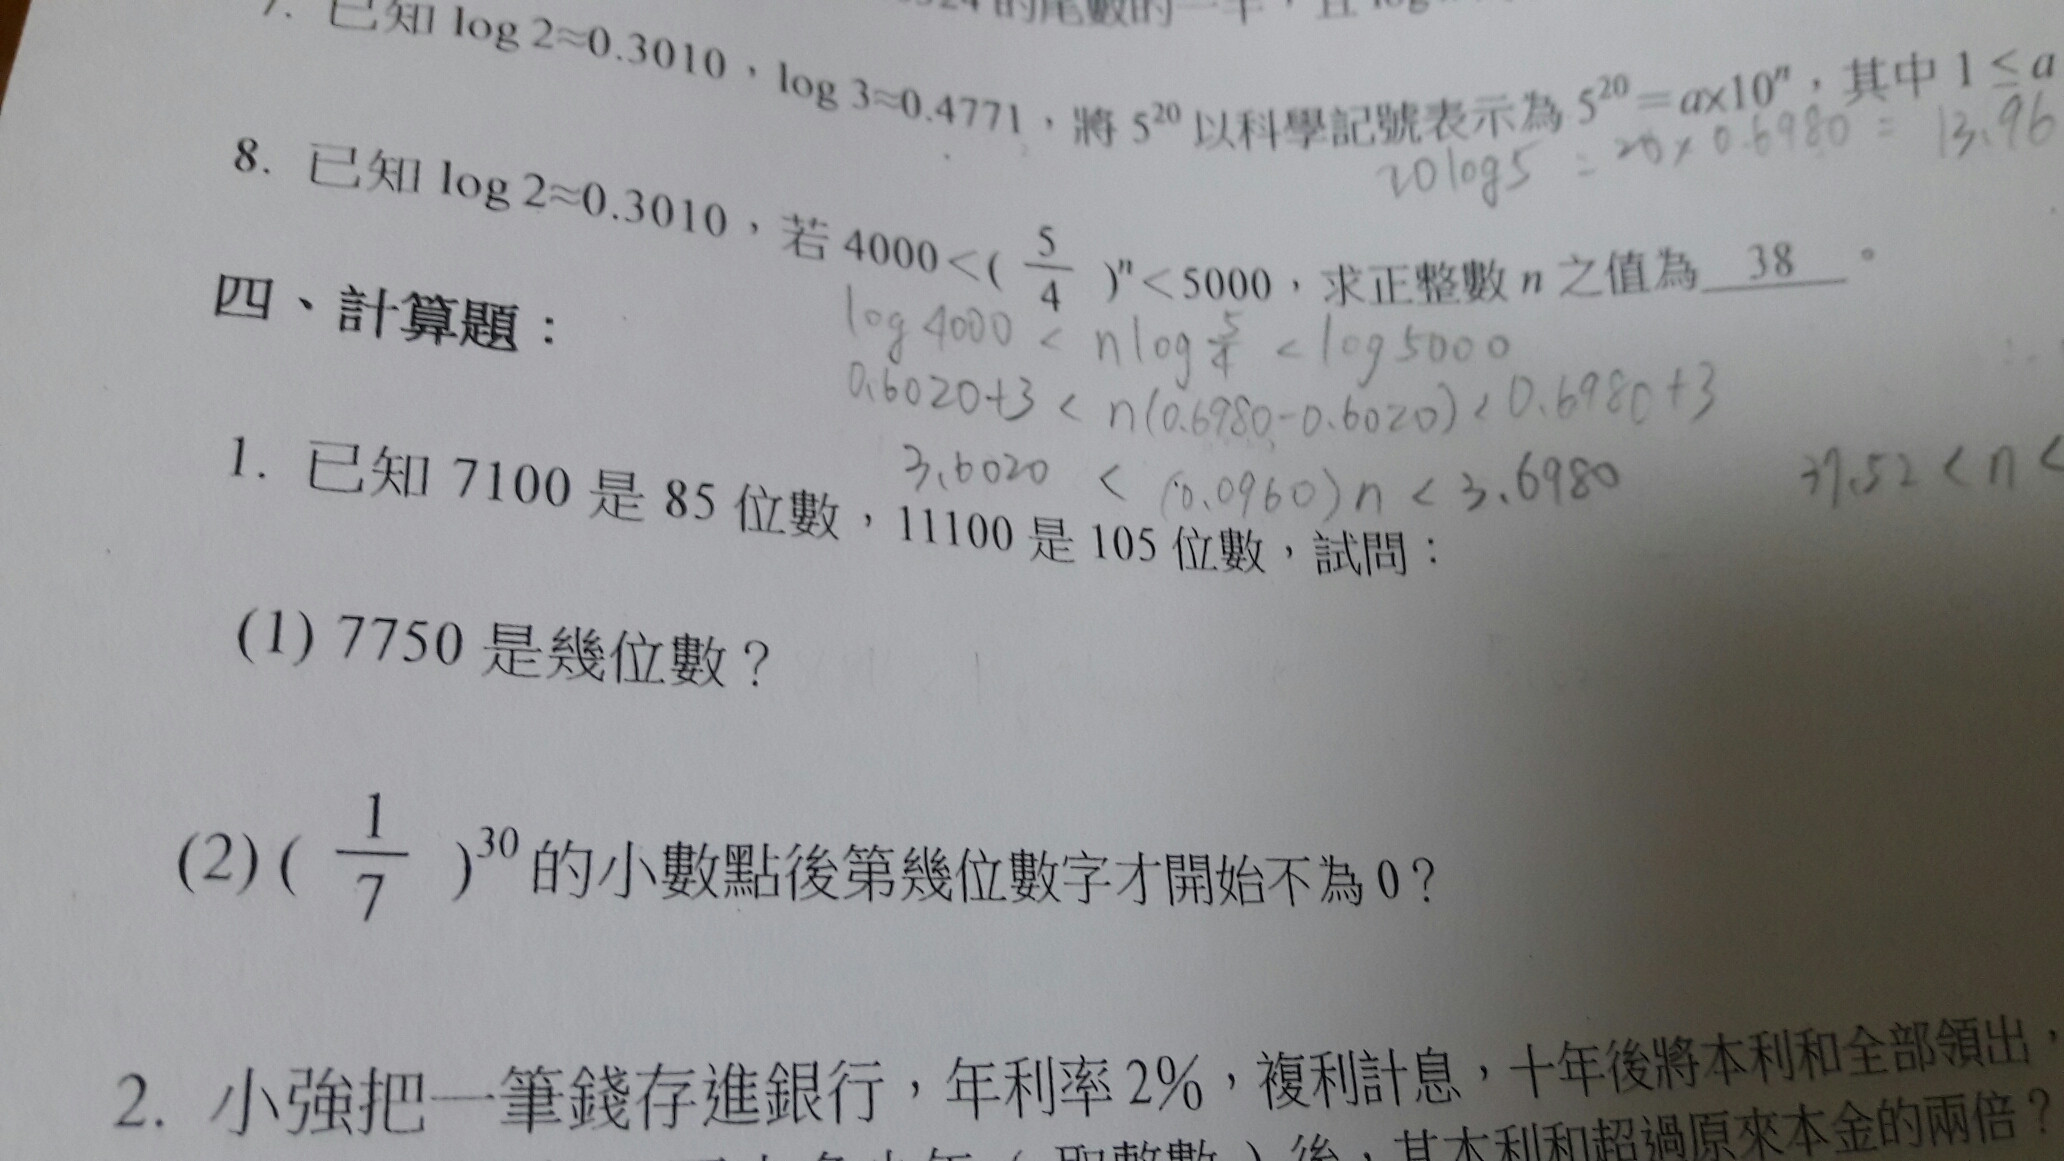 的尾數的一半,且
7. 已知 log 2≈0.3010,log 3≈0.4771,將 5²⁰ 以科學記號表示為 5²⁰=a×10ⁿ,其中 1≤a
20log5 = 20×0.6980 = 13.96
8. 已知 log 2≈0.3010,若 4000<(5/4)ⁿ<5000,求正整數 n 之值為 38 。
log4000 < nlog5/4 < log5000
0.6020+3 < n(0.6980-0.6020) < 0.6980+3
3.6020 < (0.0960)n < 3.6980 37.52<n<
四、計算題:
1. 已知 7100 是 85 位數,11100 是 105 位數,試問:
(1) 7750 是幾位數?
(2) (1/7)³⁰ 的小數點後第幾位數字才開始不為 0?
2. 小強把一筆錢存進銀行,年利率 2%,複利計息,十年後將本利和全部領出,
後,其本利和超過原來本金的兩倍?